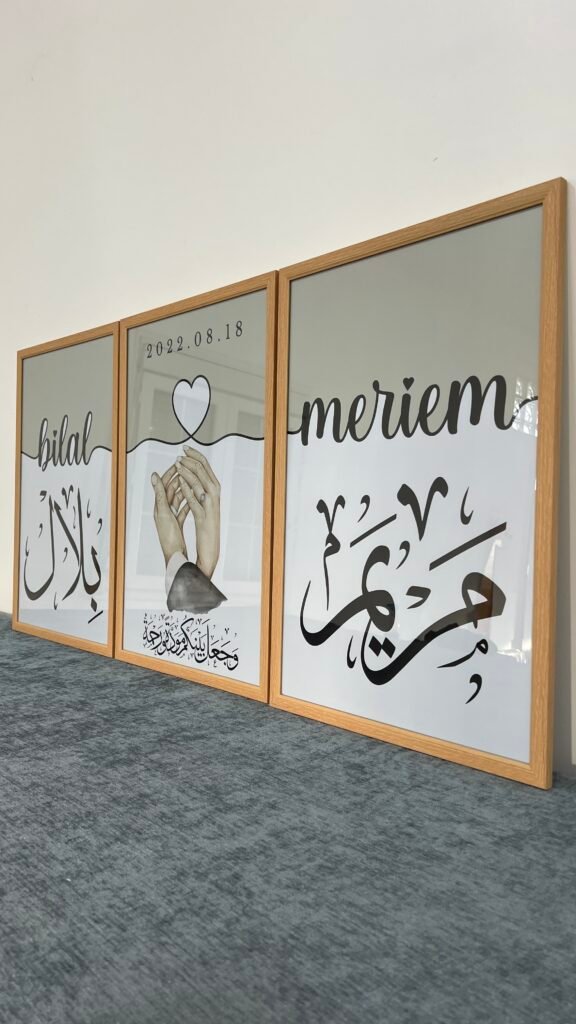 bilal
بِلَال
2022.08.18
وجعل بينكم مودة ورحمة
meriem
مَريَم